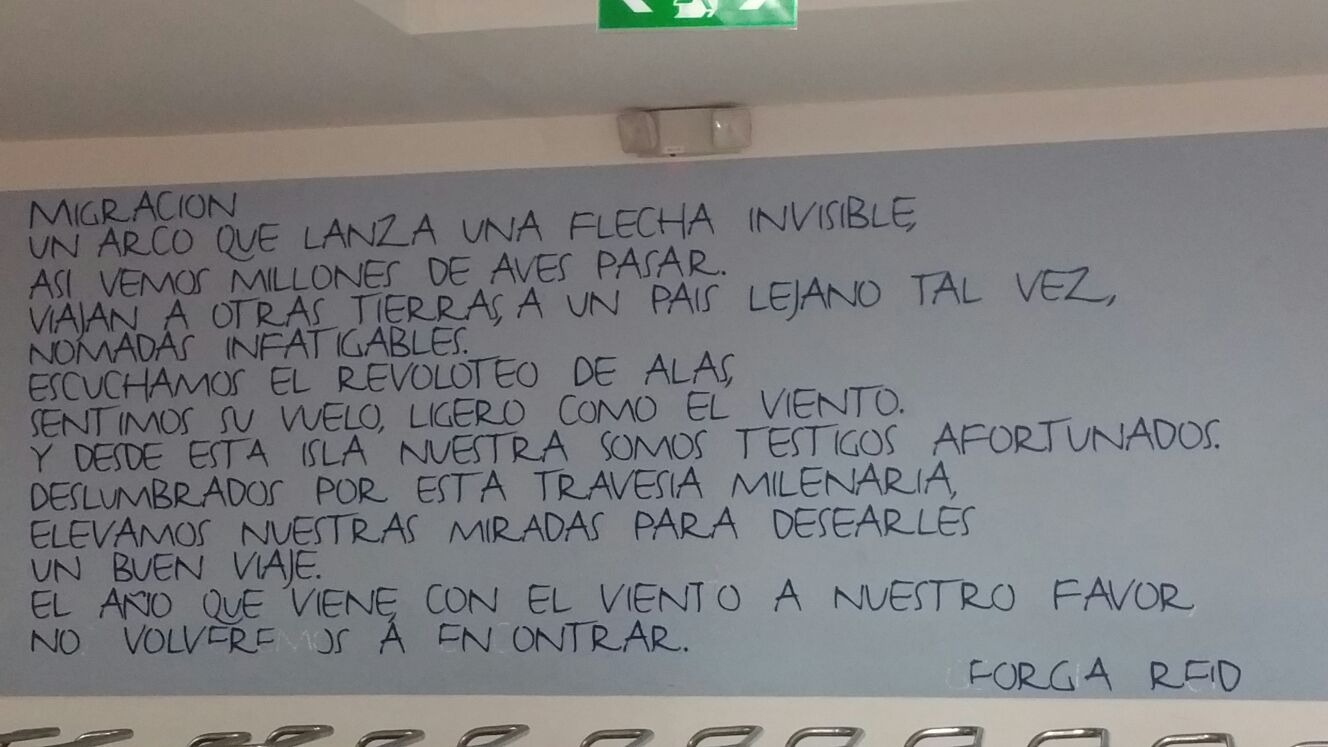 MIGRACION
UN ARCO QUE LANZA UNA FLECHA INVISIBLE,
ASI VEMOS MILLONES DE AVES PASAR.
VIAJAN A OTRAS TIERRAS, A UN PAIS LEJANO TAL VEZ,
NOMADAS INFATIGABLES.
ESCUCHAMOS EL REVOLOTEO DE ALAS,
SENTIMOS SU VUELO, LIGERO COMO EL VIENTO.
Y DESDE ESTA ISLA NUESTRA SOMOS TESTIGOS AFORTUNADOS.
DESLUMBRADOS POR ESTA TRAVESIA MILENARIA,
ELEVAMOS NUESTRAS MIRADAS PARA DESEARLES
UN BUEN VIAJE.
EL AÑO QUE VIENE, CON EL VIENTO A NUESTRO FAVOR,
NO VOLVEREMOS A ENCONTRAR.
REID